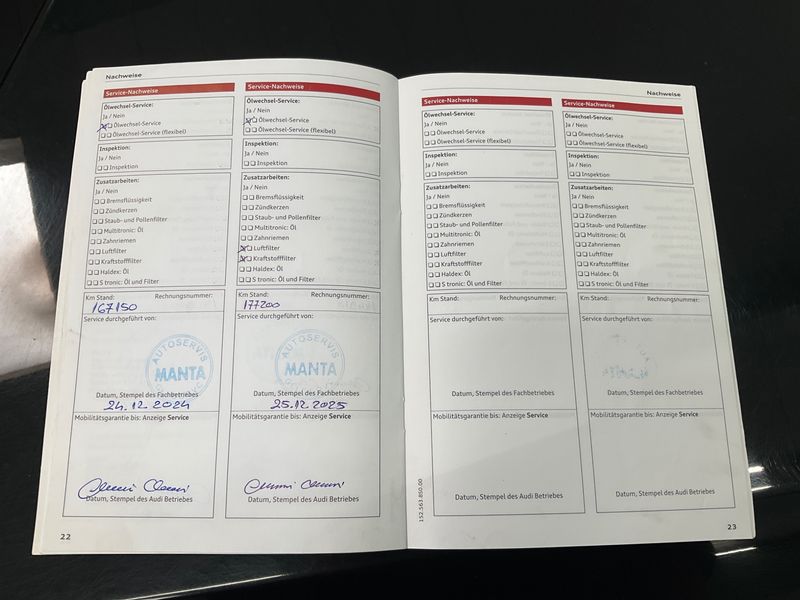 Nachweise
Service-Nachweise
Ölwechsel-Service:
Ja / Nein
Ölwechsel-Service
Ölwechsel-Service (flexibel)
Inspektion:
Ja / Nein
Inspektion
Zusatzarbeiten:
Ja / Nein
Bremsflüssigkeit
Zündkerzen
Staub- und Pollenfilter
Multitronic: Öl
Zahnriemen
Luftfilter
Kraftstofffilter
Haldex: Öl
S tronic: Öl und Filter
Km Stand: Rechnungsnummer:
167150
Service durchgeführt von:
AUTOSERVIS
MANTA
Datum, Stempel des Fachbetriebes
24.12.2024
Mobilitätsgarantie bis: Anzeige Service
Datum, Stempel des Audi Betriebes
22
Service-Nachweise
Ölwechsel-Service:
Ja / Nein
Ölwechsel-Service
Ölwechsel-Service (flexibel)
Inspektion:
Ja / Nein
Inspektion
Zusatzarbeiten:
Ja / Nein
Bremsflüssigkeit
Zündkerzen
Staub- und Pollenfilter
Multitronic: Öl
Zahnriemen
Luftfilter
Kraftstofffilter
Haldex: Öl
S tronic: Öl und Filter
Km Stand: Rechnungsnummer:
177200
Service durchgeführt von:
AUTOSERVIS
MANTA
Datum, Stempel des Fachbetriebes
25.12.2025
Mobilitätsgarantie bis: Anzeige Service
Datum, Stempel des Audi Betriebes
Nachweise
Service-Nachweise
Ölwechsel-Service:
Ja / Nein
Ölwechsel-Service
Ölwechsel-Service (flexibel)
Inspektion:
Ja / Nein
Inspektion
Zusatzarbeiten:
Ja / Nein
Bremsflüssigkeit
Zündkerzen
Staub- und Pollenfilter
Multitronic: Öl
Zahnriemen
Luftfilter
Kraftstofffilter
Haldex: Öl
S tronic: Öl und Filter
Km Stand: Rechnungsnummer:
Service durchgeführt von:
Datum, Stempel des Fachbetriebes
Mobilitätsgarantie bis: Anzeige Service
Datum, Stempel des Audi Betriebes
152.563.850.00
Service-Nachweise
Ölwechsel-Service:
Ja / Nein
Ölwechsel-Service
Ölwechsel-Service (flexibel)
Inspektion:
Ja / Nein
Inspektion
Zusatzarbeiten:
Ja / Nein
Bremsflüssigkeit
Zündkerzen
Staub- und Pollenfilter
Multitronic: Öl
Zahnriemen
Luftfilter
Kraftstofffilter
Haldex: Öl
S tronic: Öl und Filter
Km Stand: Rechnungsnummer:
Service durchgeführt von:
Datum, Stempel des Fachbetriebes
Mobilitätsgarantie bis: Anzeige Service
Datum, Stempel des Audi Betriebes
23